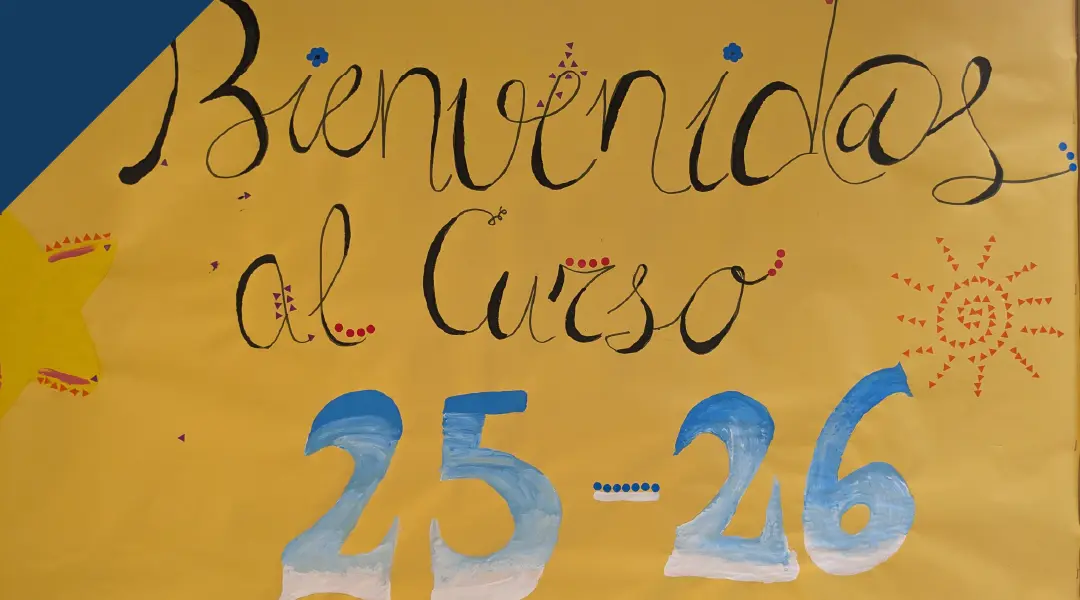 Bienvenid@s
al Curso
25-26